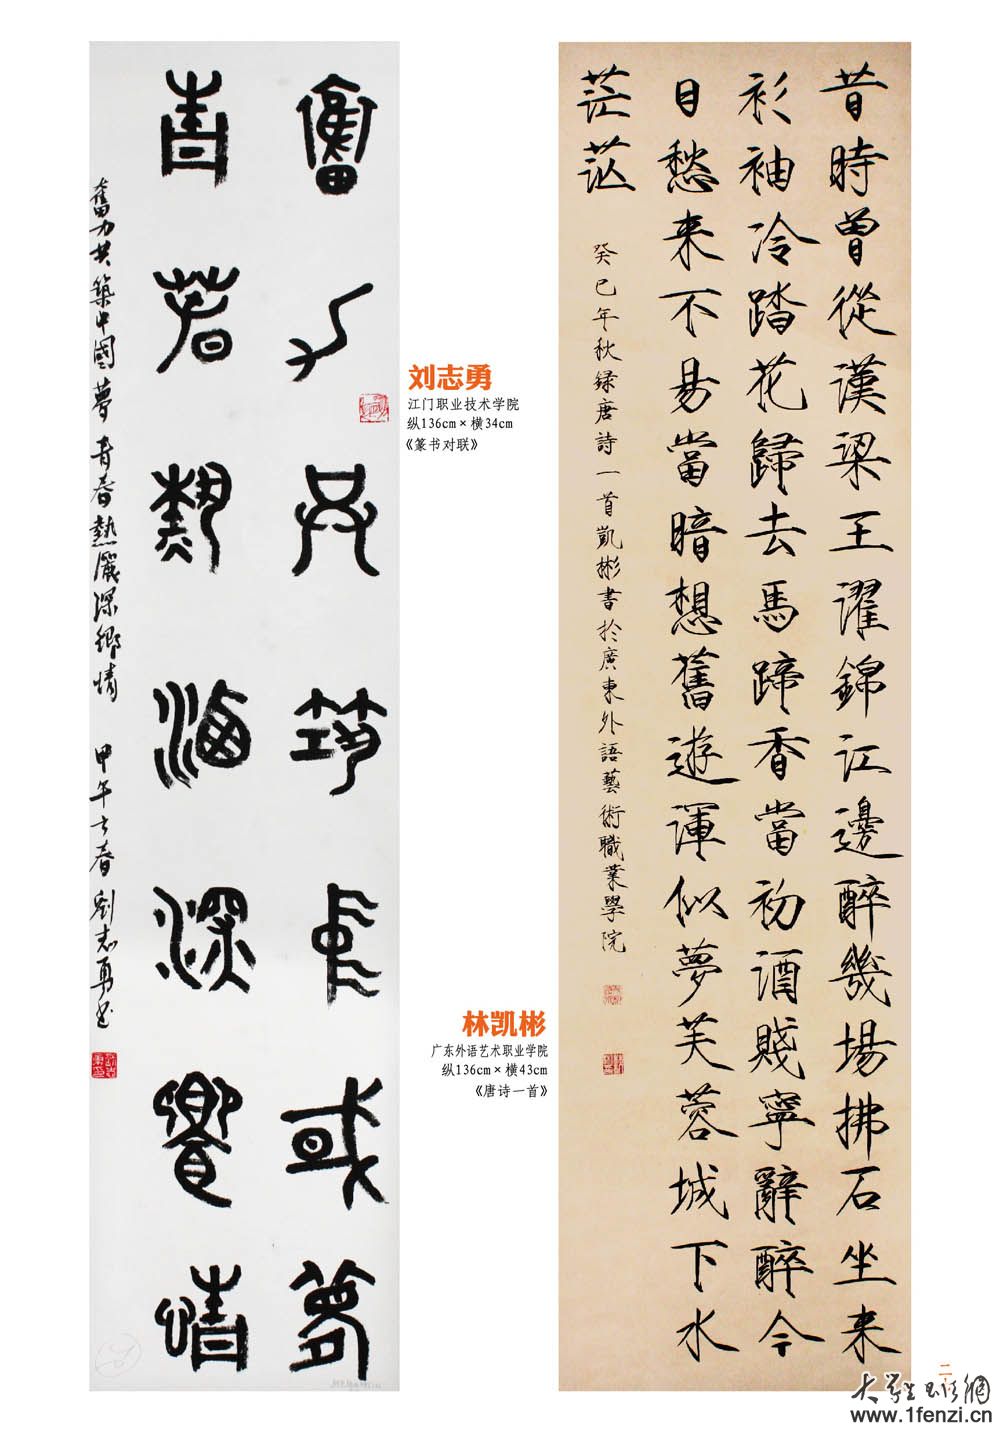 昔時曾從漢梁王濯錦江邊醉幾場拂石坐來
衫袖冷踏花歸去馬蹄香當初酒賤寧辭醉今
日愁來不易當暗想舊遊渾似夢芙蓉城下水
茫茫
癸巳年秋録唐詩一首凱彬書於廣東外語藝術職業學院
林凯彬
广东外语艺术职业学院
纵136cm×横43cm
《唐诗一首》
奮力共築中國夢
青春熱灑深鄉情
奮力共築中國夢 青春熱灑深鄉情 甲午之春劉志勇書
刘志勇
江门职业技术学院
纵136cm×横34cm
《篆书对联》
大學生書法網
www.1fenzi.cn